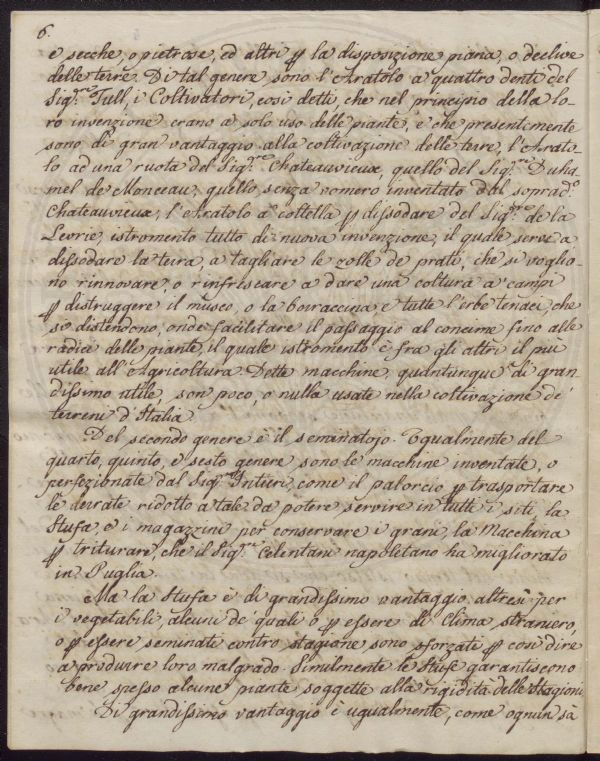 6.
e secche, o pietrose, ed altri ꝑ la disposizione piana, o declive
delle terre. Di tal genere sono l'Aratolo a quattro denti del
Sig.re Tull, i Coltivatori, così detti, che nel principio della lo-
ro invenzione erano a solo uso delle piante, e che presentemente
sono di gran vantaggio alla coltivazione delle terre, l'Arato-
lo ad una ruota del Sig.re Chateauvieux, quello del Sig.re Duha-
mel de Monceau, quello senza vomero inventato dal soprad.o
Chateauvieux, l'Aratolo a coltella ꝑ dissodare del Sig.re de la
Levrie, istromento tutto di nuova invenzione, il quale serve a
dissodare la terra, a tagliare le zolle de prati, che si voglio-
no rinnovare, o rinfrescare a dare una coltura a' campi
ꝑ distruggere il musco, o la borraccina e tutte l'erbe tenaci, che
si distendono, onde facilitare il passaggio al concime fino alle
radici delle piante, il quale istromento è fra gli altri il più
utile all'Agricoltura. Dette macchine, quantunque di gran
dissimo utile, son poco, o nulla usate nella coltivazione de'
terreni d'Italia.
Del secondo genere è il seminatojo. Egualmente del
quarto, quinto, e sesto genere sono le macchine inventate, o
perfezionate dal Sig.re Intieri, come il palorcio ꝑ trasportare
le derate ridotto a tale da potere servire in tutti i siti, la
Stufa e i magazzini per conservare i grani, la Macchina
ꝑ triturare, che il Sig.re Celentani napoletano ha migliorato
in Puglia.
Ma la Stufa è di grandissimo vantaggio altresì per
i vegetabili, alcuni de' quali o ꝑ essere di Clima straniero,
o ꝑ essere seminati contro stagione sono sforzate ꝑ così dire
a produrre loro malgrado. Similmente le Stufe garantiscono
bene spesso alcune piante soggette alla rigidità delle Stagioni
Di grandissimo vantaggio è ugualmente, come ognun sà